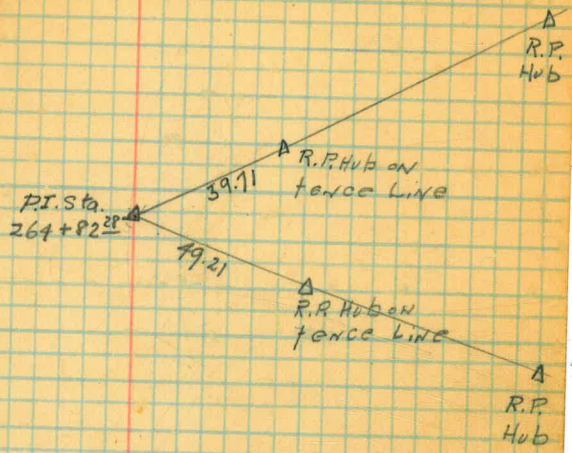 R.P.
Hub
R.P. Hub on
fence Line
39.71
P.I. Sta.
264+82 28
49.21
R.P. Hub on
fence Line
R.P.
Hub